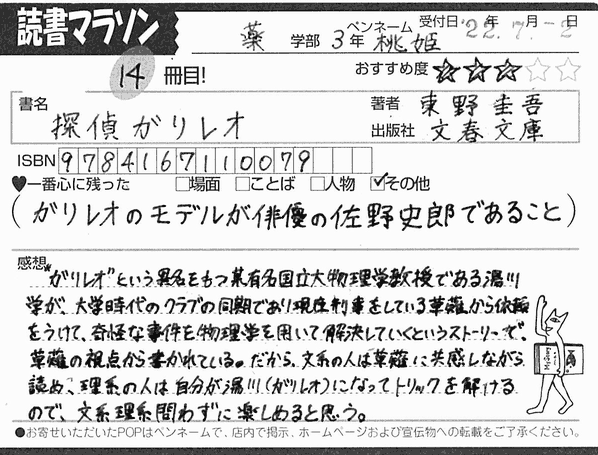 読書マラソン
薬 学部 3年 ペンネーム 桃姫 受付日 '22年 7月 -2日
14 冊目! おすすめ度 ★★★☆☆
書名 探偵がリレオ
著者 東野圭吾
出版社 文春文庫
ISBN 9784167110079
♥一番心に残った □場面 □ことば □人物 ☑その他
(がリレオのモデルが俳優の佐野史郎であること)
感想 "がリレオ"という異名をもつ某有名国立大物理学教授である湯川
学が、大学時代のクラブの同期であり現在刑事をしている草薙から依頼
をうけて、奇怪な事件を物理学を用いて解決していくというストーリーで、
草薙の視点から書かれている。だから、文系の人は草薙に共感しながら
読め、理系の人は自分が湯川(がリレオ)になってトリックを解ける
ので、文系理系問わずに楽しめると思う。
●お寄せいただいたPOPはペンネームで、店内で掲示、ホームページおよび宣伝物への転載をご了承ください。